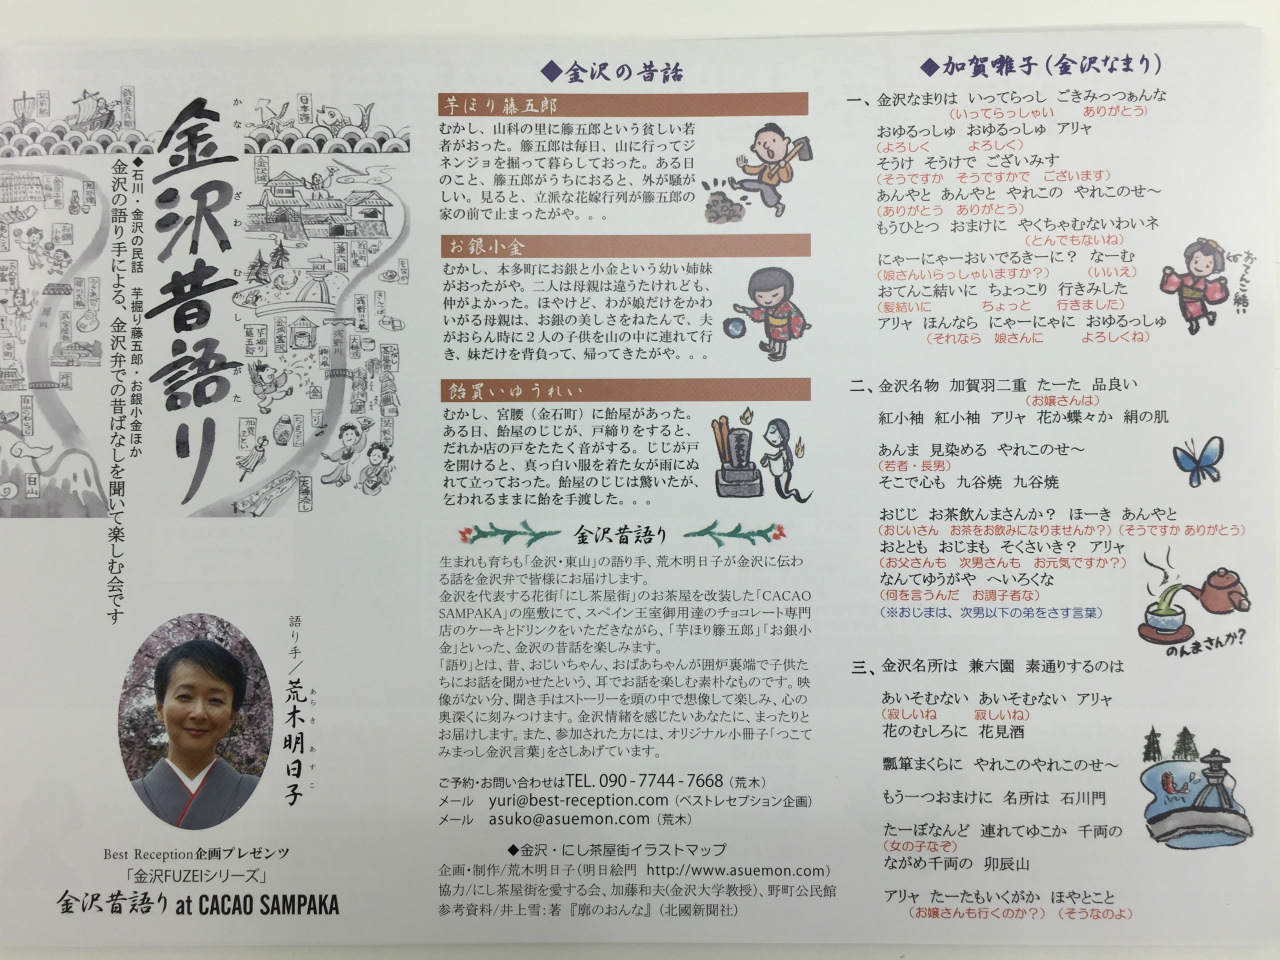 金沢昔語り
かなざわむかしがたり
◆石川・金沢の民話 芋掘り藤五郎・お銀小金ほか
金沢の語り手による、金沢弁での昔ばなしを聞いて楽しむ会です
日本海
金沢城
兼六園
白山
語り手/荒木明日子
あらき あすこ
Best Reception企画プレゼンツ
「金沢FUZEIシリーズ」
金沢昔語り at CACAO SAMPAKA
◆金沢の昔話
芋ほり藤五郎
むかし、山科の里に籐五郎という貧しい若
者がおった。籐五郎は毎日、山に行ってジ
ネンジョを掘って暮らしておった。ある日
のこと、籐五郎がうちにおると、外が騒が
しい。見ると、立派な花嫁行列が籐五郎の
家の前で止まったがや。。。
お銀小金
むかし、本多町にお銀と小金という幼い姉妹
がおったがや。二人は母親は違うたけれども、
仲がよかった。ほやけど、わが娘だけをかわ
いがる母親は、お銀の美しさをねたんで、夫
がおらん時に2人の子供を山の中に連れて行
き、妹だけを背負って、帰ってきたがや。。。
飴買いゆうれい
むかし、宮腰(金石町)に飴屋があった。
ある日、飴屋のじじが、戸締りをすると、
だれか店の戸をたたく音がする。じじが戸
を開けると、真っ白い服を着た女が雨にぬ
れて立っておった。飴屋のじじは驚いたが、
乞われるままに飴を手渡した。。。
金沢昔語り
生まれも育ちも「金沢・東山」の語り手、荒木明日子が金沢に伝わ
る話を金沢弁で皆様にお届けします。
金沢を代表する花街「にし茶屋街」のお茶屋を改装した「CACAO
SAMPAKA」の座敷にて、スペイン王室御用達のチョコレート専門
店のケーキとドリンクをいただきながら、「芋ほり籐五郎」「お銀小
金」といった、金沢の昔話を楽しみます。
「語り」とは、昔、おじいちゃん、おばあちゃんが囲炉裏端で子供た
ちにお話を聞かせたという、耳でお話を楽しむ素朴なものです。映
像がない分、聞き手はストーリーを頭の中で想像して楽しみ、心の
奥深くに刻みつけます。金沢情緒を感じたいあなたに、まったりと
お届けします。また、参加された方には、オリジナル小冊子「つこて
みまっし金沢言葉」をさしあげています。
ご予約・お問い合わせはTEL. 090-7744-7668(荒木)
メール yuri@best-reception.com(ベストレセプション企画)
メール asuko@asuemon.com(荒木)
◆金沢・にし茶屋街イラストマップ
企画・制作/荒木明日子(明日絵門 http://www.asuemon.com)
協力/にし茶屋街を愛する会、加藤和夫(金沢大学教授)、野町公民館
参考資料/井上雪:著『廓のおんな』(北國新聞社)
◆加賀囃子(金沢なまり)
一、金沢なまりは いってらっし ごきみっつぁんな
(いってらっしゃい ありがとう)
おゆるっしゅ おゆるっしゅ アリャ
(よろしく よろしく)
そうけ そうけで ございみす
(そうですか そうですかで ございます)
あんやと あんやと やれこの やれこのせ〜
(ありがとう ありがとう)
もうひとつ おまけに やくちゃむないわいネ
(とんでもないね)
にゃーにゃーおいでるきーに? なーむ
(娘さんいらっしゃいますか?) (いいえ)
おてんこ結いに ちょっこり 行きみした
(髪結いに ちょっと 行きました)
アリャ ほんなら にゃーにゃに おゆるっしゅ
(それなら 娘さんに よろしくね)
おてんこ結い
二、金沢名物 加賀羽二重 たーた 品良い
(お嬢さんは)
紅小袖 紅小袖 アリャ 花か蝶々か 絹の肌
あんま 見染める やれこのせ〜
(若者・長男)
そこで心も 九谷焼 九谷焼
おじじ お茶飲んまさんか? ほーき あんやと
(おじいさん お茶をお飲みになりませんか?)(そうですか ありがとう)
おととも おじまも そくさいき? アリャ
(お父さんも 次男さんも お元気ですか?)
なんてゆうがや へいろくな
(何を言うんだ お調子者な)
(※おじまは、次男以下の弟をさす言葉)
のんまさんか?
三、金沢名所は 兼六園 素通りするのは
あいそむない あいそむない アリャ
(寂しいね 寂しいね)
花のむしろに 花見酒
瓢箪まくらに やれこのやれこのせ〜
もう一つおまけに 名所は 石川門
たーぼなんど 連れてゆこか 千両の
(女の子なぞ)
ながめ千両の 卯辰山
アリャ たーたもいくがか ほやとこと
(お嬢さんも行くのか?) (そうなのよ)